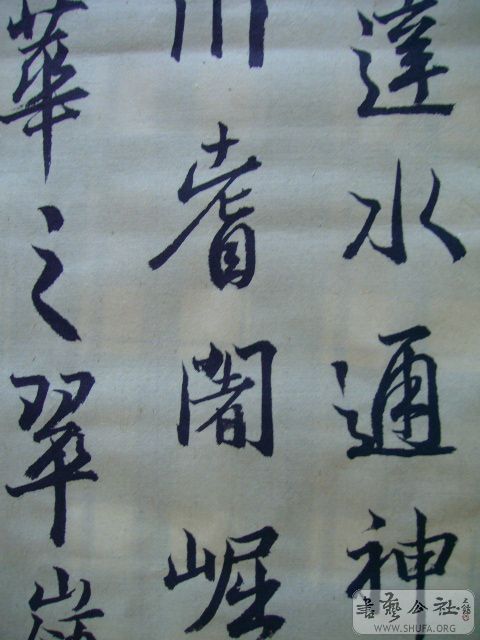 達水通神
川耆闍崛
華之翠嶺
書藝公社
WWW.SHUFA.ORG